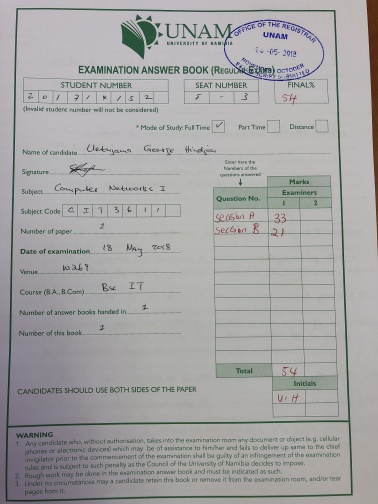 UNAM
UNIVERSITY OF NAMIBIA
OFFICE OF THE REGISTRAR
UNAM
-05- 2018
EXAMINATION ANSWER BOOK
STUDENT NUMBER
SEAT NUMBER
FINAL%
5 - 3
54
(Invalid student number will not be considered)
* Mode of Study: Full Time ✓ Part Time Distance
Name of candidate George
Signature
Enter here the Numbers of the questions answered
Subject Computer Networks I
Subject Code C I T 3 6 1 1
Number of paper
Date of examination 18 May 2018
Venue W269
Course (B.A., B.Com) Bsc IT
Number of answer books handed in 1
Number of this book 1
Marks
Question No.
Examiners
1 2
Section A 33
Section B 21
Total 54
Initials
V.H
CANDIDATES SHOULD USE BOTH SIDES OF THE PAPER
WARNING
1. Any candidate who, without authorisation, takes into the examination room any document or object (e.g. cellular
phones or electronic devices) which may be of assistance to him/her and fails to deliver up same to the chief
invigilator prior to the commencement of the examination shall be guilty of an infringement of the examination
rules and is subject to such penalty as the Council of the University of Namibia decides to impose.
2. Rough work may be done in the examination answer book and must be indicated as such.
3. Under no circumstances may a candidate retain this book or remove it from the examination room, and/or tear
pages from it.